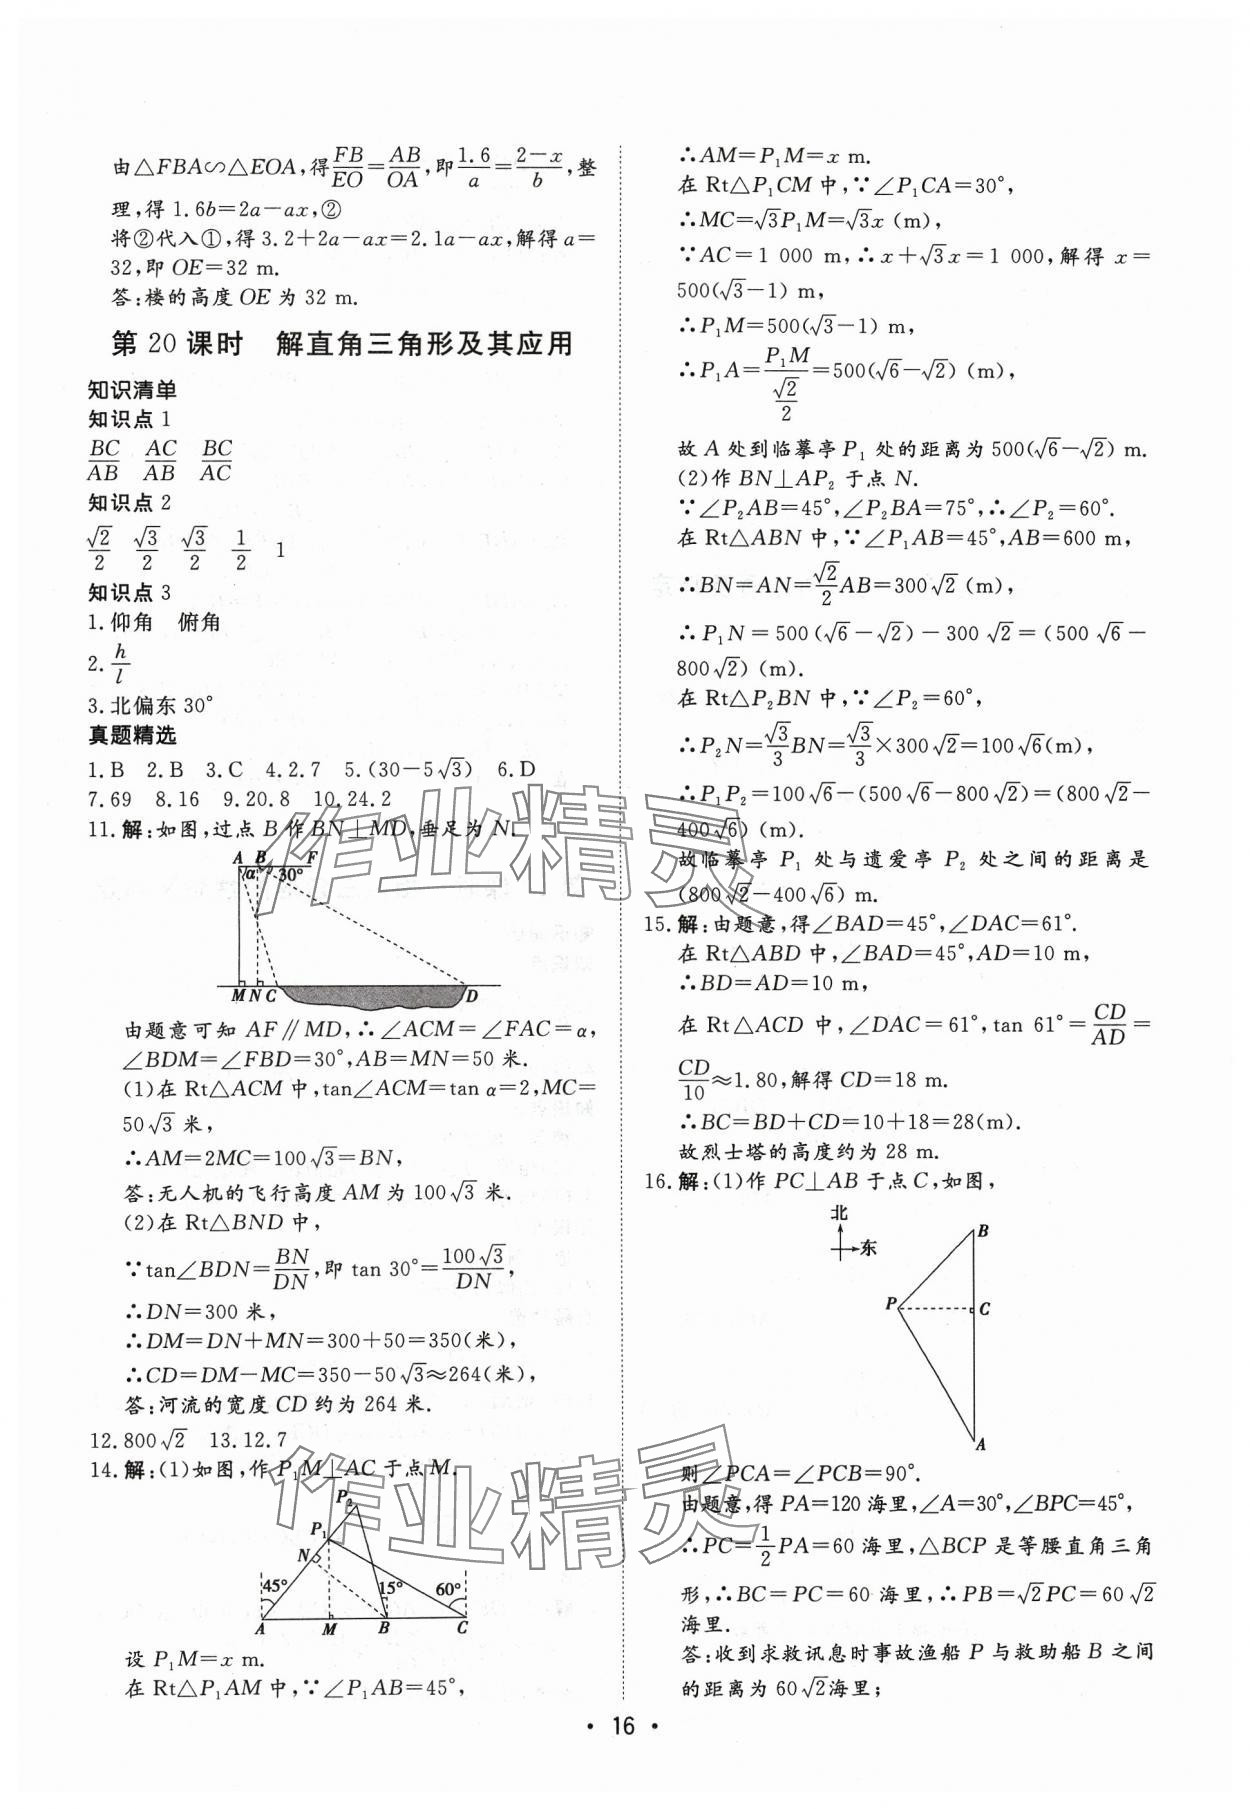 由△FBA∽△EOA,得FB/EO=AB/OA,即1.6/a=(2-x)/b,整
理,得1.6b=2a-ax,②
将②代入①,得3.2+2a-ax=2.1a-ax,解得a=
32,即OE=32 m.
答:楼的高度OE为32 m.
第20课时 解直角三角形及其应用
知识清单
知识点1
BC/AB AC/AB BC/AC
知识点2
√2/2 √3/2 √3/2 1/2 1
知识点3
1.仰角 俯角
2.h/l
3.北偏东30°
真题精选
1.B 2.B 3.C 4.2.7 5.(30-5√3) 6.D
7.69 8.16 9.20.8 10.24.2
11.解:如图,过点B作BN⊥MD,垂足为N.
A B F
α 30°
M N C D
由题意可知AF∥MD,∴∠ACM=∠FAC=α,
∠BDM=∠FBD=30°,AB=MN=50米.
(1)在Rt△ACM中,tan∠ACM=tan α=2,MC=
50√3米,
∴AM=2MC=100√3=BN,
答:无人机的飞行高度AM为100√3米.
(2)在Rt△BND中,
∵tan∠BDN=BN/DN,即tan 30°=100√3/DN,
∴DN=300米,
∴DM=DN+MN=300+50=350(米),
∴CD=DM-MC=350-50√3≈264(米),
答:河流的宽度CD约为264米.
12.800√2 13.12.7
14.解:(1)如图,作P₁M⊥AC于点M.
P₂
P₁
N
45° 15° 60°
A M B C
设P₁M=x m.
在Rt△P₁AM中,∵∠P₁AB=45°,
∴AM=P₁M=x m.
在Rt△P₁CM中,∵∠P₁CA=30°,
∴MC=√3P₁M=√3x(m),
∵AC=1 000 m,∴x+√3x=1 000,解得x=
500(√3-1) m,
∴P₁M=500(√3-1) m,
∴P₁A=P₁M/(√2/2)=500(√6-√2)(m),
故A处到临摹亭P₁处的距离为500(√6-√2) m.
(2)作BN⊥AP₂于点N.
∵∠P₂AB=45°,∠P₂BA=75°,∴∠P₂=60°.
在Rt△ABN中,∵∠P₁AB=45°,AB=600 m,
∴BN=AN=√2/2AB=300√2(m),
∴P₁N=500(√6-√2)-300√2=(500√6-
800√2)(m).
在Rt△P₂BN中,∵∠P₂=60°,
∴P₂N=√3/3BN=√3/3×300√2=100√6(m),
∴P₁P₂=100√6-(500√6-800√2)=(800√2-
400√6)(m).
故临摹亭P₁处与遗爱亭P₂处之间的距离是
(800√2-400√6) m.
15.解:由题意,得∠BAD=45°,∠DAC=61°.
在Rt△ABD中,∠BAD=45°,AD=10 m,
∴BD=AD=10 m.
在Rt△ACD中,∠DAC=61°,tan 61°=CD/AD=
CD/10≈1.80,解得CD=18 m.
∴BC=BD+CD=10+18=28(m).
故烈士塔的高度约为28 m.
16.解:(1)作PC⊥AB于点C,如图,
北
东
B
P C
A
则∠PCA=∠PCB=90°.
由题意,得PA=120海里,∠A=30°,∠BPC=45°,
∴PC=1/2PA=60海里,△BCP是等腰直角三角
形,∴BC=PC=60海里,∴PB=√2PC=60√2
海里.
答:收到求救讯息时事故渔船P与救助船B之间
的距离为60√2海里;
• 16 •
作业精灵
作业精灵